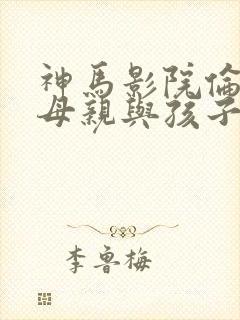 神馬影院倫
母親與孩子
李魯梅